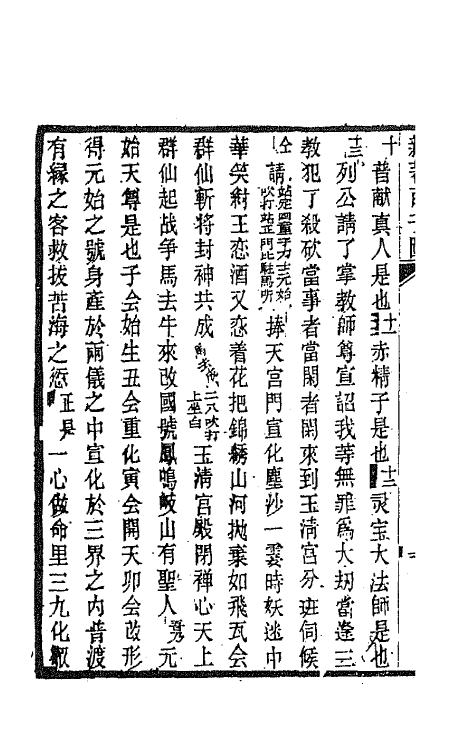 十普献真人是也十一赤精子是也十二灵宝大法師是也
十三列公請了掌教師尊宣詔我等無罪為大刼當逢三
教犯了殺砍當事者當閑者閑來到玉清宮分班伺候
仝請 捧天宮門宣化塵沙一雲時妖迷中
華笑紂王恋酒又恋着花把錦綉山河抛棄如飛瓦会
群仙斬将封神共成 二八吹打上坐白 玉清宮殿閉禅心天上
群仙起战争馬去牛來改國號鳳鳴岐山有聖人 元
始天尊是也子会始生丑会重化寅会開天卯会改形
得元始之號身產於兩儀之中宣化於三界之內普渡
有縁之客救拔苦海之愆正是一心做命里三九化